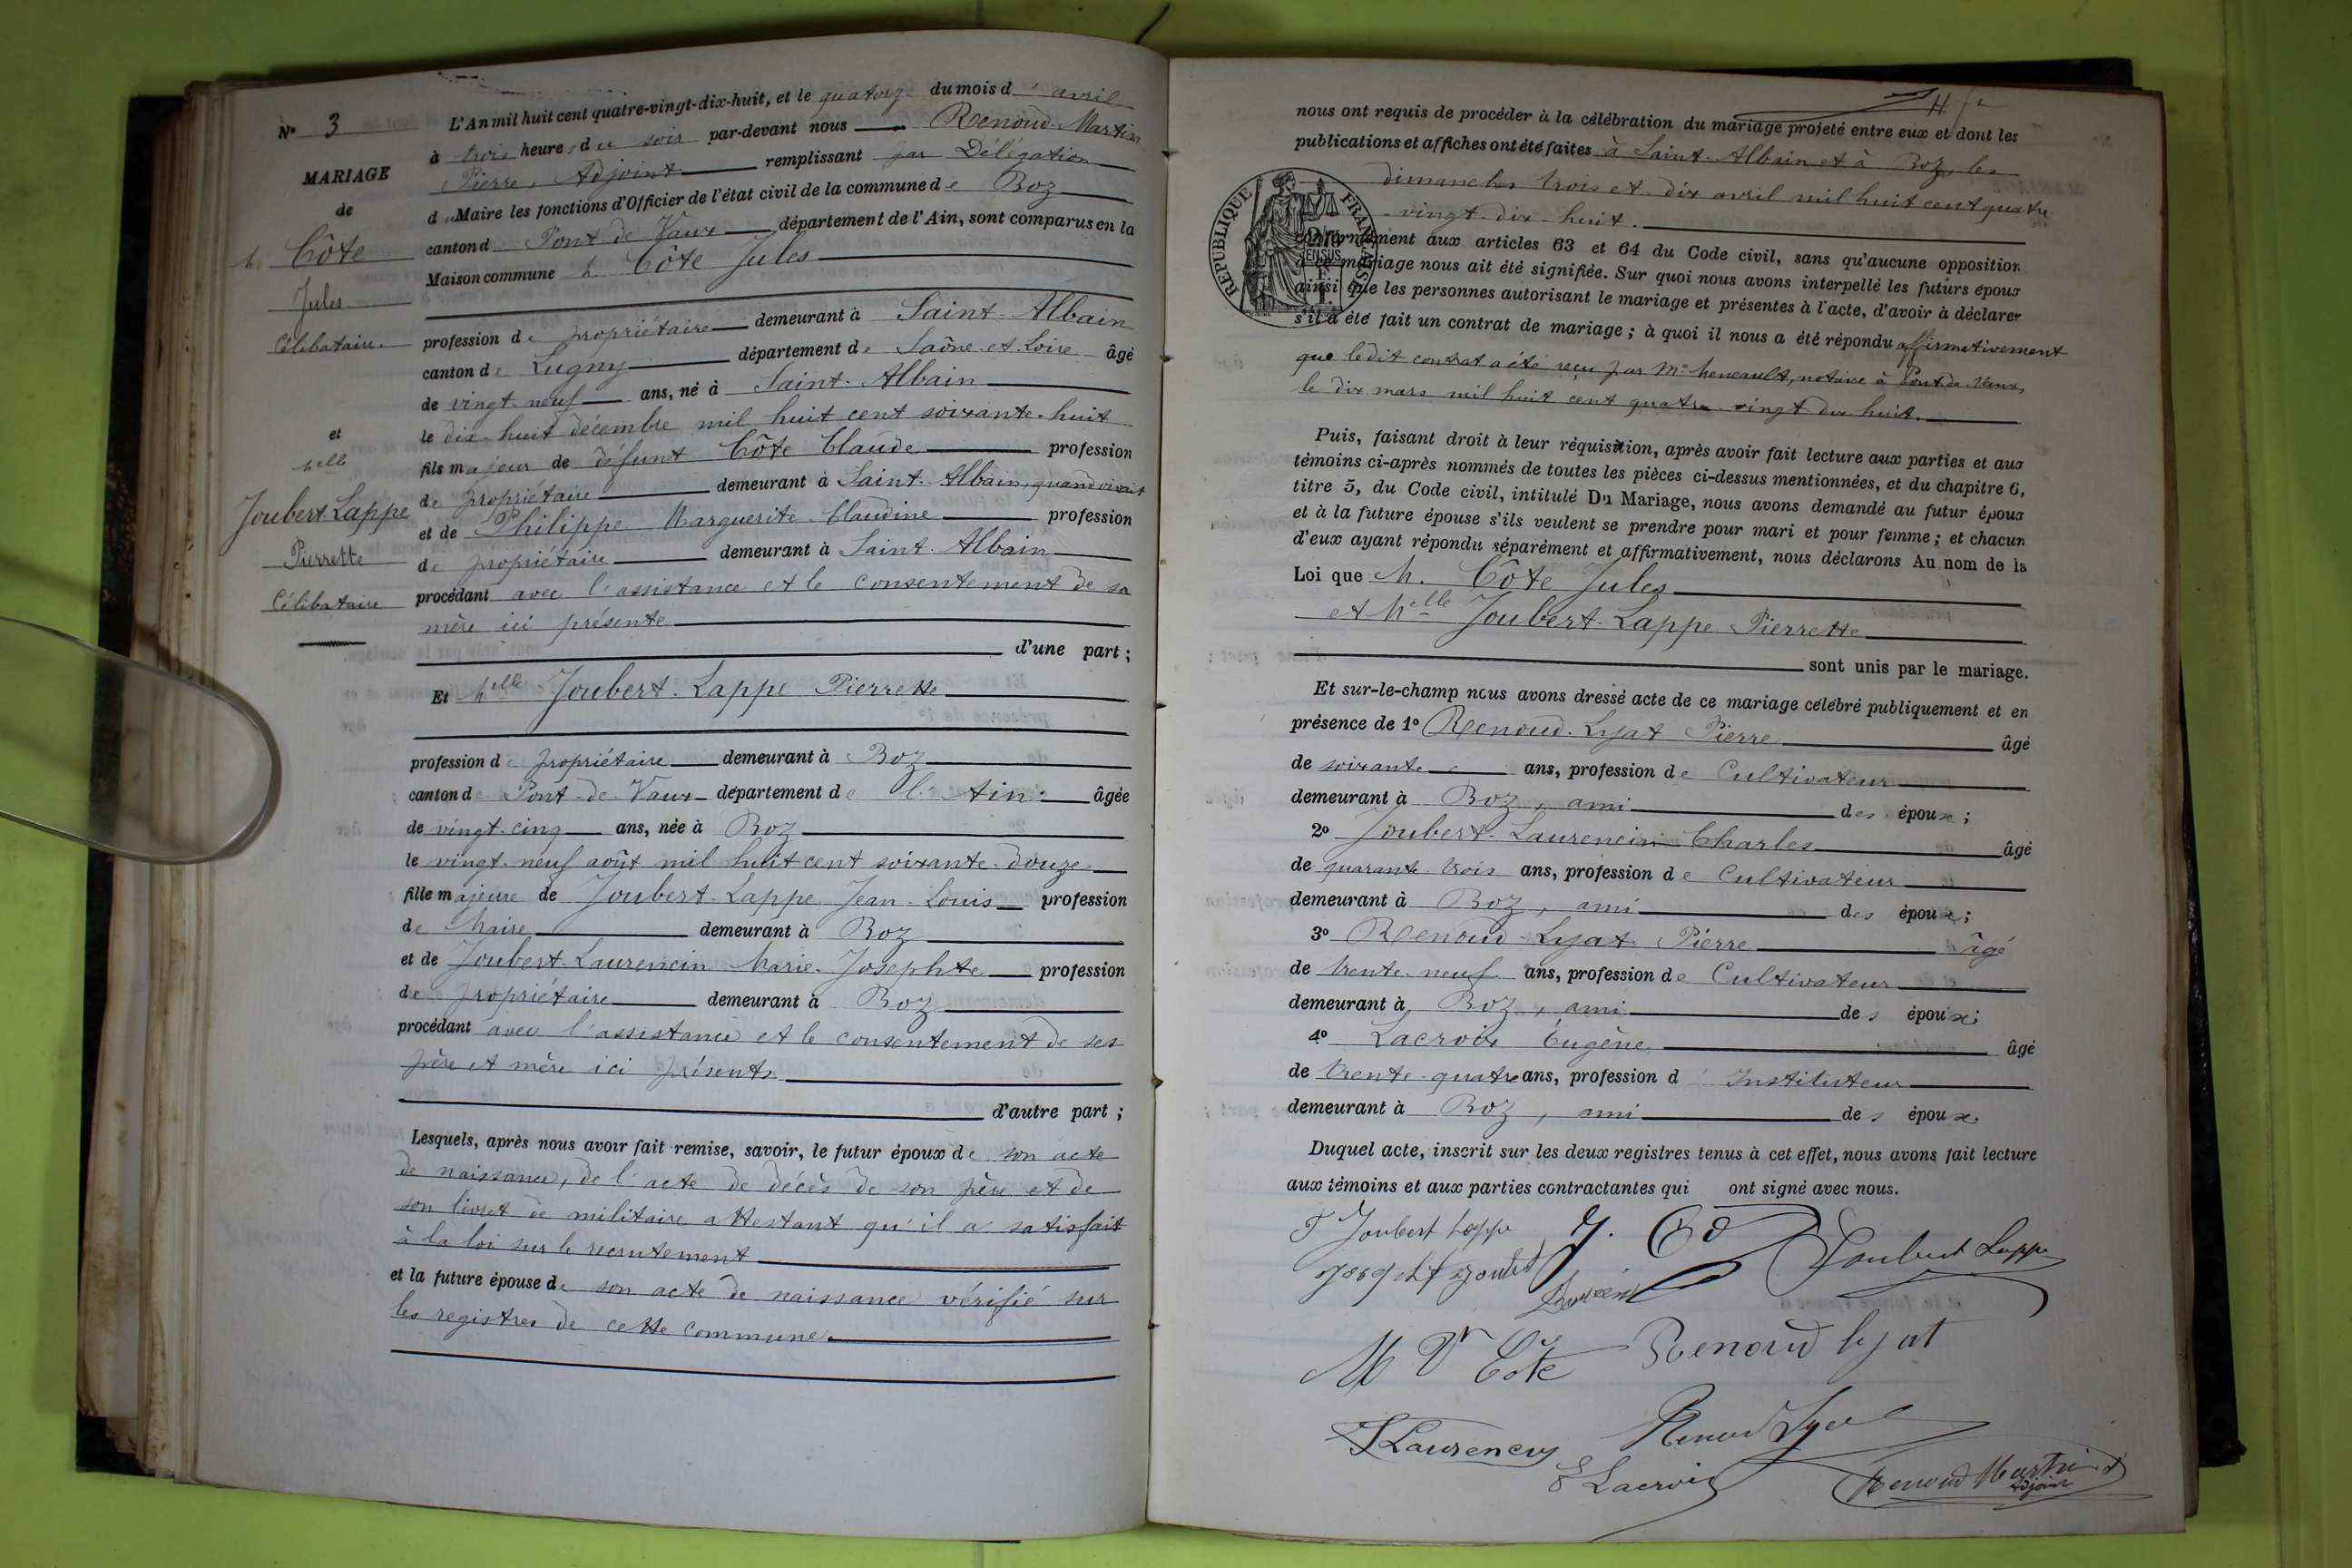 N° 3
MARIAGE
de
M. Côte
Jules
Célibataire
et
Melle
Joubert-Lappe
Pierrette
Célibataire
L'An mil huit cent quatre-vingt-dix-huit, et le quatorze du mois d'avril
à trois heures du soir par-devant nous Renoud-Martin
Pierre, Adjoint remplissant par Délégation
du Maire les fonctions d'Officier de l'état civil de la commune de Boz
canton de Pont de Vaux département de l'Ain, sont comparus en la
Maison commune M Côte Jules
profession de propriétaire demeurant à Saint-Albain
canton de Lugny département de Saône-et-Loire âgé
de vingt-neuf ans, né à Saint-Albain
le dix-huit décembre mil huit cent soixante-huit
fils majeur de défunt Côte Claude profession
de propriétaire demeurant à Saint-Albain, quand vivait
et de Philippe Marguerite Claudine profession
de propriétaire demeurant à Saint-Albain
procédant avec l'assistance et le consentement de sa
mère ici présente
d'une part ;
Et Melle Joubert-Lappe Pierrette
profession de propriétaire demeurant à Boz
canton de Pont-de-Vaux département de l'Ain âgée
de vingt-cinq ans, née à Boz
le vingt-neuf août mil huit cent soixante-douze
fille majeure de Joubert-Lappe Jean-Louis profession
de Maire demeurant à Boz
et de Joubert-Laurencin Marie-Josephte profession
de propriétaire demeurant à Boz
procédant avec l'assistance et le consentement de ses
père et mère ici présents
d'autre part ;
Lesquels, après nous avoir fait remise, savoir, le futur époux de son acte
de naissance, de l'acte de décès de son père et de
son livret de militaire attestant qu'il a satisfait
à la loi sur le recrutement
et la future épouse de son acte de naissance vérifié sur
les registres de cette commune.
nous ont requis de procéder à la célébration du mariage projeté entre eux et dont les
publications et affiches ont été faites à Saint-Albain et à Boz, les
dimanches trois et dix avril mil huit cent quatre
-vingt-dix-huit.
RÉPUBLIQUE FRANÇAISE
conformément aux articles 63 et 64 du Code civil, sans qu'aucune opposition
à ce mariage nous ait été signifiée. Sur quoi nous avons interpellé les futurs époux
ainsi que les personnes autorisant le mariage et présentes à l'acte, d'avoir à déclarer
s'il a été fait un contrat de mariage ; à quoi il nous a été répondu affirmativement
que ledit contrat a été reçu par Me notaire à Pont-de-Vaux,
le dix mars mil huit cent quatre-vingt dix huit.
Puis, faisant droit à leur réquisition, après avoir fait lecture aux parties et aux
témoins ci-après nommés de toutes les pièces ci-dessus mentionnées, et du chapitre 6,
titre 5, du Code civil, intitulé Du Mariage, nous avons demandé au futur époux
et à la future épouse s'ils veulent se prendre pour mari et pour femme ; et chacun
d'eux ayant répondu séparément et affirmativement, nous déclarons Au nom de la
Loi que M. Côte Jules
et Melle Joubert-Lappe Pierrette
sont unis par le mariage.
Et sur-le-champ nous avons dressé acte de ce mariage célébré publiquement et en
présence de 1° Renoud-Lyat Pierre âgé
de soixante ans, profession de Cultivateur
demeurant à Boz, ami des époux ;
2° Joubert-Laurencin Charles âgé
de quarante trois ans, profession de Cultivateur
demeurant à Boz, ami des époux ;
3° Renoud-Lyat Pierre âgé
de trente-neuf ans, profession de Cultivateur
demeurant à Boz, ami des époux ;
4° Lacroix Eugène âgé
de trente-quatre ans, profession d'Instituteur
demeurant à Boz, ami des époux.
Duquel acte, inscrit sur les deux registres tenus à cet effet, nous avons fait lecture
aux témoins et aux parties contractantes qui ont signé avec nous.
Joubert Lappe J. Co Joubert Lappe
M Côte Renoud Lyat
Renoud Lyat
E Lacroix Renoud Martin
Adjoint